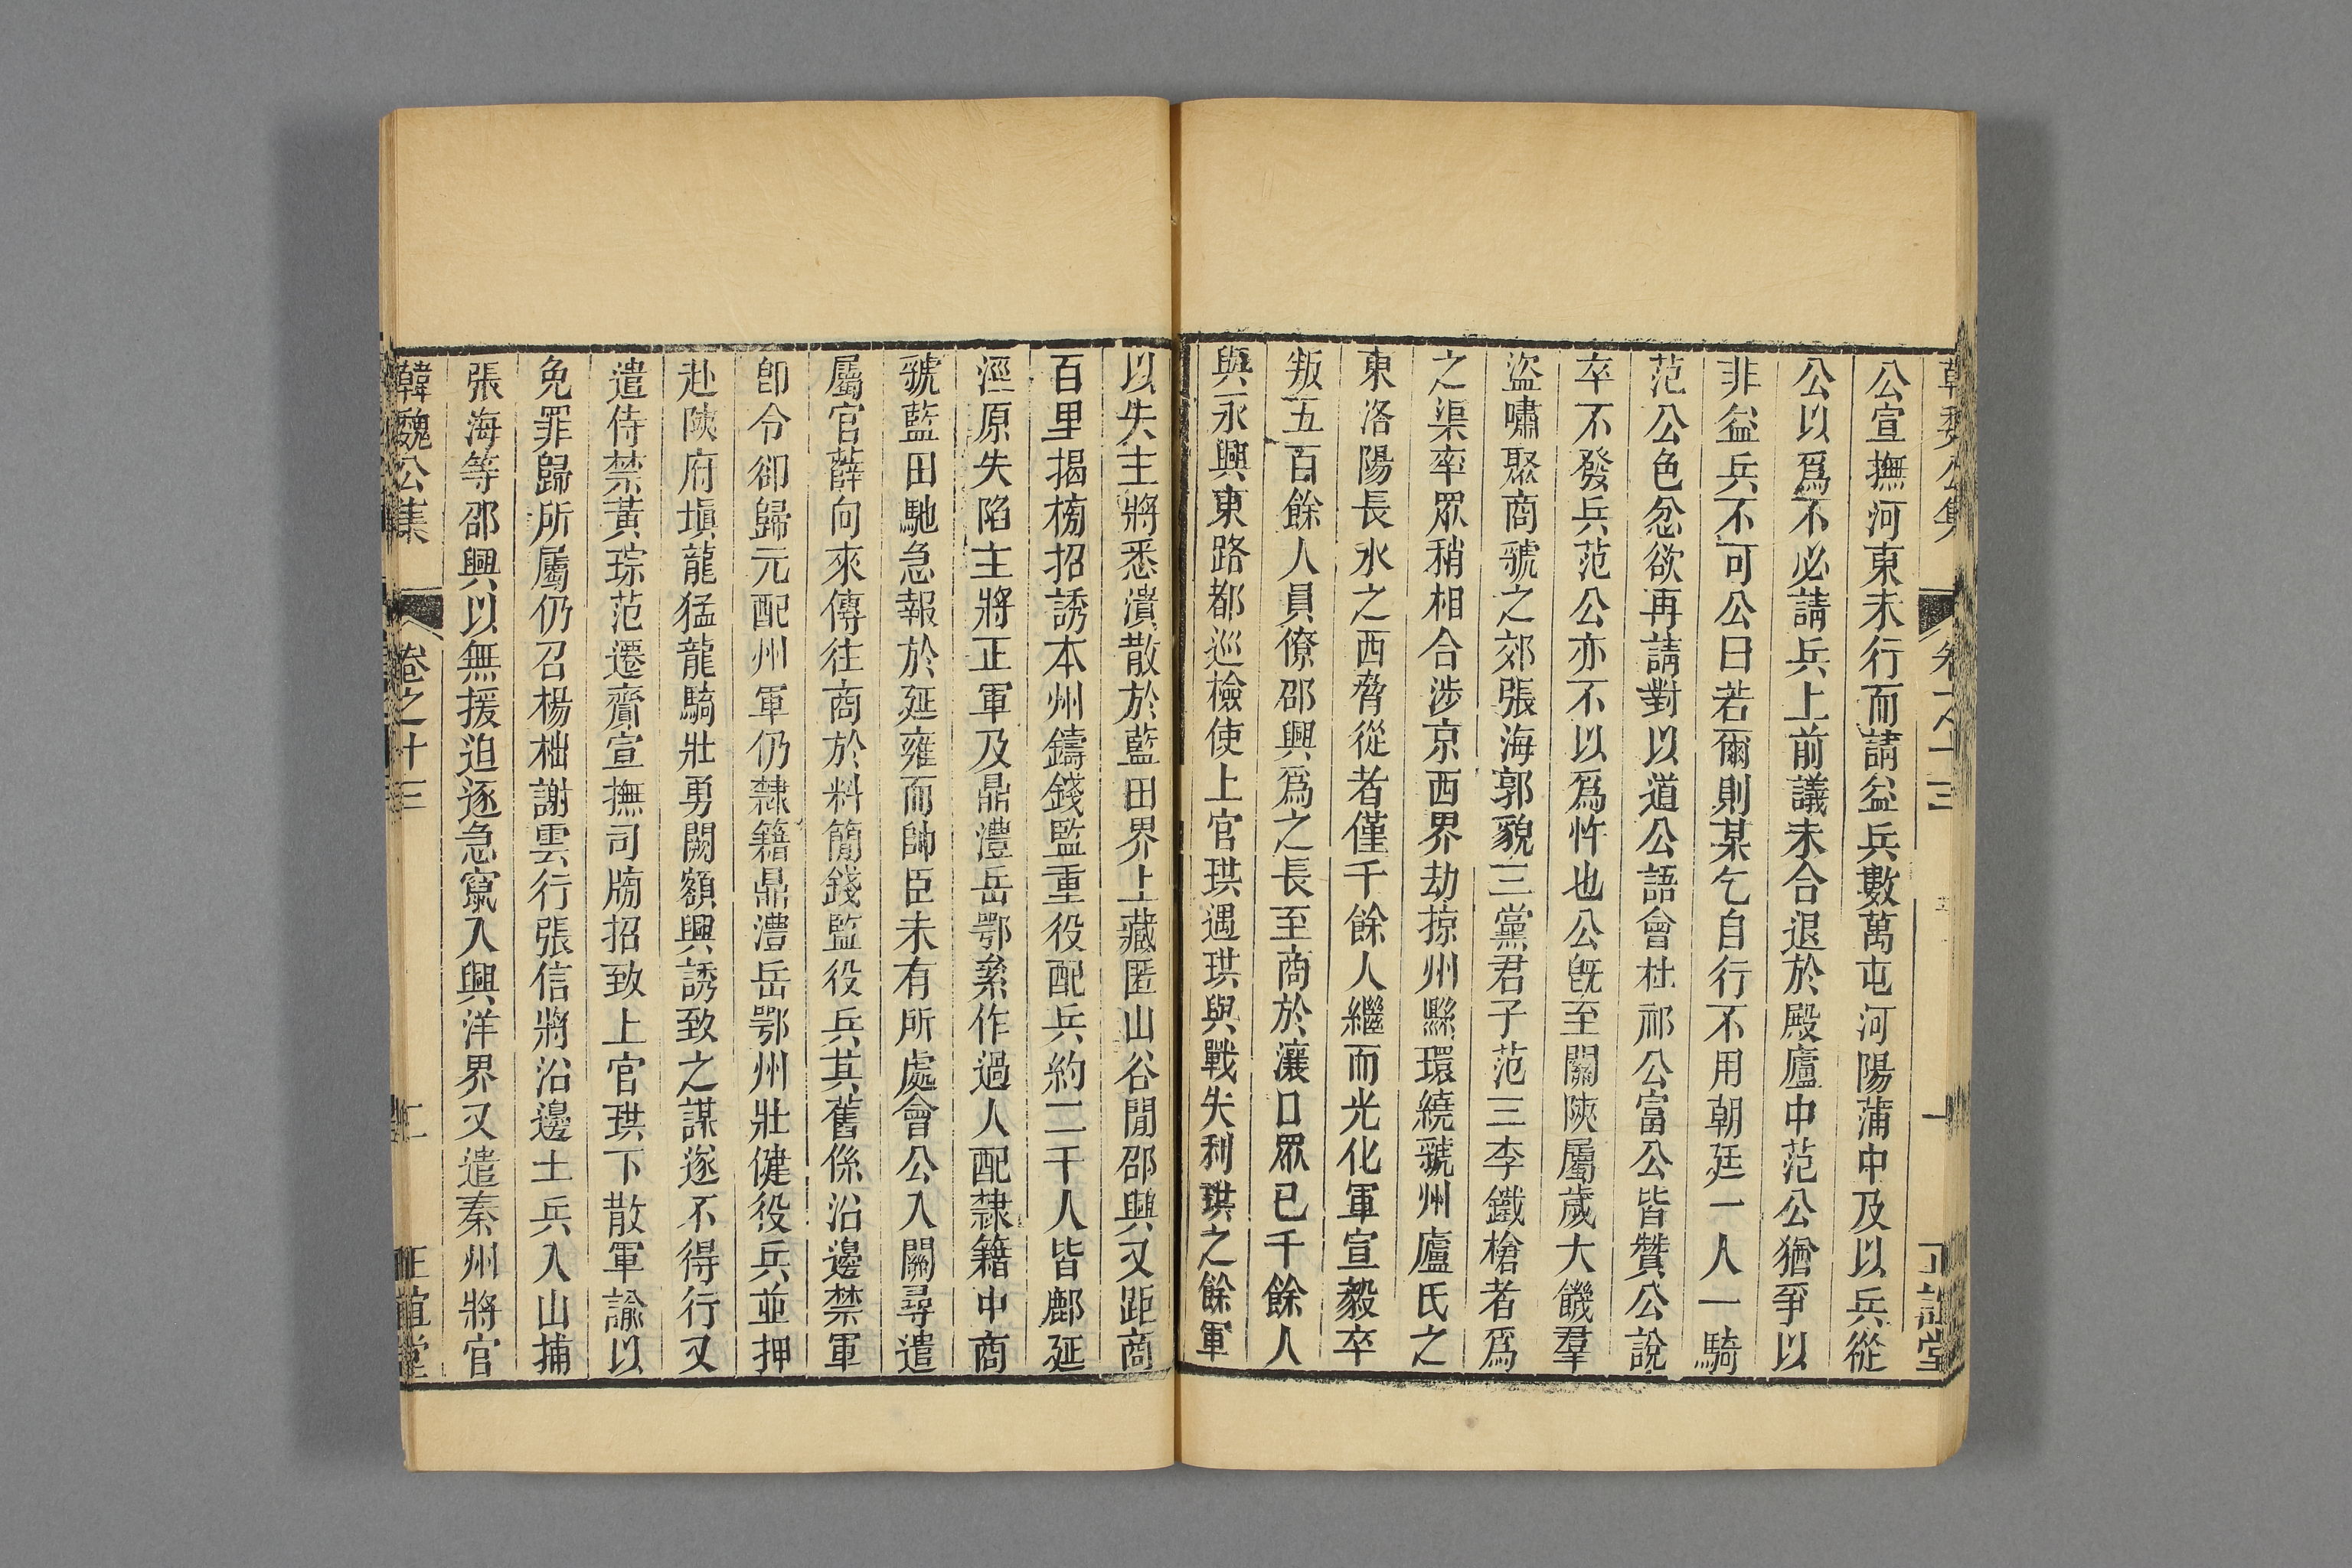 韓魏公集 卷之十三 一 正誼堂
公宣撫河東未行而請益兵數萬屯河陽蒲中及以兵從
公以爲不必請兵上前議未合退於殿廬中范公猶爭以
非益兵不可公曰若爾則某乞自行不用朝廷一人一騎
范公色忿欲再請對以道公語會杜祁公富公皆贊公說
卒不發兵范公亦不以爲忤也公旣至關陝屬歲大饑羣
盜嘯聚商虢之郊張海郭貌三黨君子范三李鐵槍者爲
之渠率眾稍相合涉京西界劫掠州縣環繞虢州盧氏之
東洛陽長水之西脅從者僅千餘人繼而光化軍宣毅卒
叛五百餘人員僚邵興爲之長至商於瀼口眾已千餘人
與永興東路都巡檢使上官珙遇珙與戰失利珙之餘軍
以失主將悉潰散於藍田界上藏匿山谷閒邵興又距商
百里揭榜招誘本州鑄錢監重役配兵約二千人皆鄜延
涇原失陷主將正軍及鼎澧岳鄂累作過人配隸籍中商
虢藍田馳急報於延雍而帥臣未有所處會公入關尋遣
屬官薛向來傳往商於料簡錢監役兵其舊係沿邊禁軍
卽令卻歸元配州軍仍隸籍鼎澧岳鄂州壯健役兵並押
赴陝府塡龍猛龍騎壯勇闕額興誘致之謀遂不得行又
遣侍禁黃琮范遷齎宣撫司牓招致上官珙下散軍諭以
免罪歸所屬仍召楊柮謝雲行張信將沿邊土兵入山捕
張海等邵興以無援迫逐急竄入興洋界又遣秦州將官
韓魏公集 卷之十三 二 正誼堂